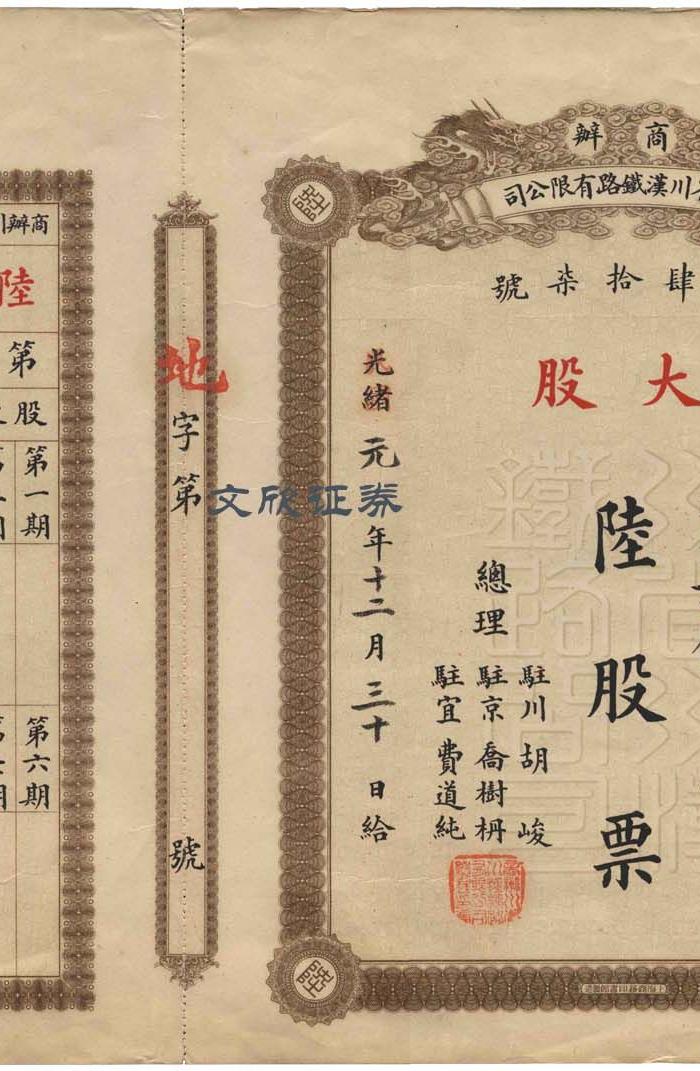 商辦
川漢鐵路有限公司
肆拾柒號
大股
陸股票
總理
駐川胡峻
駐京喬樹枬
駐宜費道純
光緒元年十二月三十日給
地字第
號
文欣证券
商辦
陸
第
股
第一期
第六期